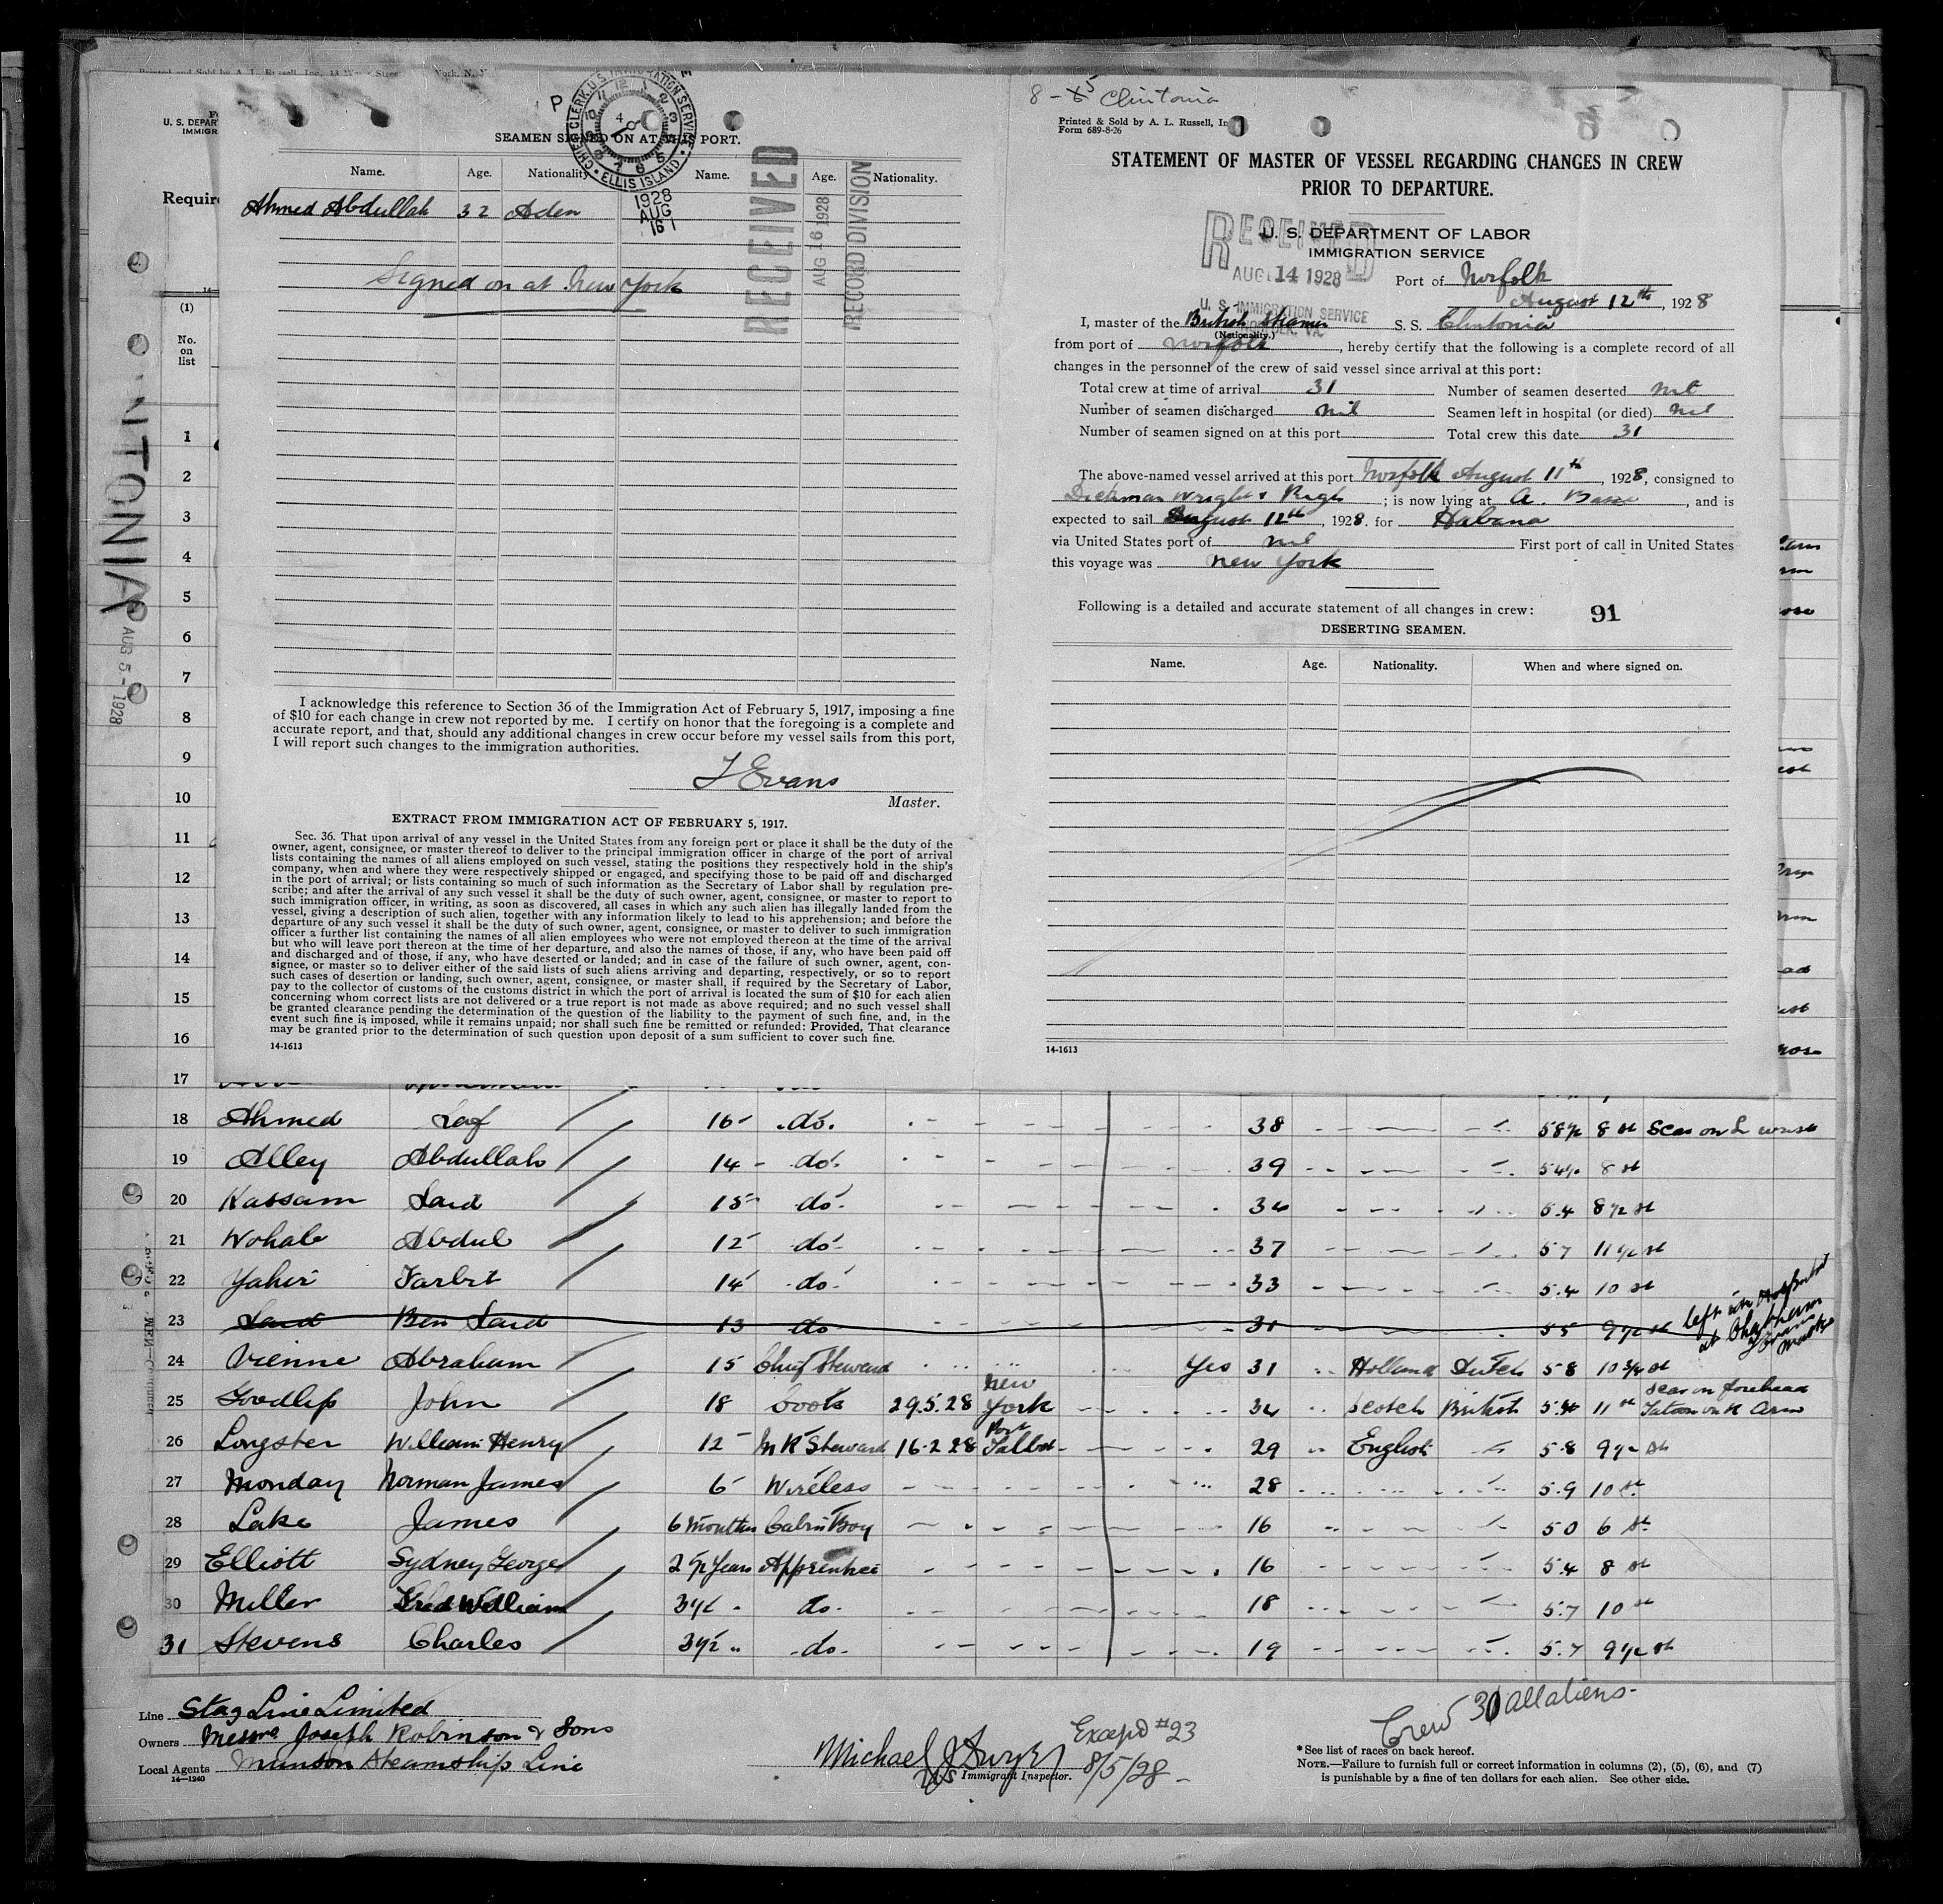 Printed and Sold by A. L. Russell, Inc.
York, N. Y.
U. S. DEPAR
IMMIGR
Require
(1)
No.
on
list
NTONIA
AUG 5 - 1928
1
2
3
4
5
6
7
8
9
10
11
12
13
14
15
16
17
P
CHIEF CLERK, U.S. IMMIGRATION SERVICE
ELLIS ISLAND
1928
AUG
16
SEAMEN SIGNED ON AT THIS PORT.
Name. Age. Nationality. Name. Age. Nationality.
Ahmed Abdullah 32 Aden
RECEIVED
AUG 16 1928
RECORD DIVISION
Signed on at New York
I acknowledge this reference to Section 36 of the Immigration Act of February 5, 1917, imposing a fine
of $10 for each change in crew not reported by me. I certify on honor that the foregoing is a complete and
accurate report, and that, should any additional changes in crew occur before my vessel sails from this port,
I will report such changes to the immigration authorities.
Evans
Master.
EXTRACT FROM IMMIGRATION ACT OF FEBRUARY 5, 1917.
Sec. 36. That upon arrival of any vessel in the United States from any foreign port or place it shall be the duty of the
owner, agent, consignee, or master thereof to deliver to the principal immigration officer in charge of the port of arrival
lists containing the names of all aliens employed on such vessel, stating the positions they respectively hold in the ship's
company, when and where they were respectively shipped or engaged, and specifying those to be paid off and discharged
in the port of arrival; or lists containing so much of such information as the Secretary of Labor shall by regulation pre-
scribe; and after the arrival of any such vessel it shall be the duty of such owner, agent, consignee, or master to report to
such immigration officer, in writing, as soon as discovered, all cases in which any such alien has illegally landed from the
vessel, giving a description of such alien, together with any information likely to lead to his apprehension; and before the
departure of any such vessel it shall be the duty of such owner, agent, consignee, or master to deliver to such immigration
officer a further list containing the names of all alien employees who were not employed thereon at the time of the arrival
but who will leave port thereon at the time of her departure, and also the names of those, if any, who have been paid off
and discharged and of those, if any, who have deserted or landed; and in case of the failure of such owner, agent, con-
signee, or master so to deliver either of the said lists of such aliens arriving and departing, respectively, or so to report
such cases of desertion or landing, such owner, agent, consignee, or master shall, if required by the Secretary of Labor,
pay to the collector of customs of the customs district in which the port of arrival is located the sum of $10 for each alien
concerning whom correct lists are not delivered or a true report is not made as above required; and no such vessel shall
be granted clearance pending the determination of the question of the liability to the payment of such fine, and, in the
event such fine is imposed, while it remains unpaid; nor shall such fine be remitted or refunded: Provided, That clearance
may be granted prior to the determination of such question upon deposit of a sum sufficient to cover such fine.
14-1613
8 - 5 Clintonia
Printed & Sold by A. L. Russell, In
Form 689-8-26
STATEMENT OF MASTER OF VESSEL REGARDING CHANGES IN CREW
PRIOR TO DEPARTURE.
RECEIVED
AUG 14 1928
U. S. IMMIGRATION SERVICE
U. S. DEPARTMENT OF LABOR
IMMIGRATION SERVICE
Port of Norfolk
August 12th, 1928
I, master of the British Steamer S. S. Clintonia
(Nationality.)
from port of Norfolk, hereby certify that the following is a complete record of all
changes in the personnel of the crew of said vessel since arrival at this port:
Total crew at time of arrival 31 Number of seamen deserted nil
Number of seamen discharged nil Seamen left in hospital (or died) nil
Number of seamen signed on at this port Total crew this date 31
The above-named vessel arrived at this port Norfolk August 11th, 1928, consigned to
Wright & ; is now lying at A. , and is
expected to sail August 12th, 1928. for Habana
via United States port of nil First port of call in United States
this voyage was New York
Following is a detailed and accurate statement of all changes in crew: 91
DESERTING SEAMEN.
Name. Age. Nationality. When and where signed on.
14-1613
18 Ahmed 16 do. 38 5 8½ 8 st Scar on L wrist
19 Alley Abdullah 14 do. 39 5 4½ 8 st
20 Kassam Said 15 do. 34 5.4 8½ st
21 Wohab Abdul 12 do. 37 5.7 11½ st
22 Yahir Farbit 14 do. 33 5.4 10 st
23 Said Ben Said 13 do 31 5 5 9½ st Left in Hospital
at Chatham
Evans
Master
24 Vienne Abraham 15 Chief Steward Yes 31 Holland Dutch 5 8 10¾ st
25 Goodlip John 18 Cook 29.5.28 New York 34 Scotch British 11 st Scar on forehead
Tatoo on R Arm
26 Longster William Henry 12 Steward 16-2-28 Port Talbot 29 English 5.8 9½ st
27 Monday Norman James 6 Wireless 28 5.9 10 st
28 Lake James 6 months Cabin Boy 16 5 0 6 st
29 Elliott Sydney George 2½ years Apprentice 16 5.4 8 st
30 Miller Fred William 3½ do. 18 5.7 10 st
31 Stevens Charles 3½ " do. 19 5.7 9½ st
Line Stag Line Limited
Owners Messrs Joseph Robinson & Sons
Local Agents Munson Steamship Line
14-1240
Michael J.
Immigrant Inspector.
Except #23
8/5/28
Crew 30 all aliens
*See list of races on back hereof.
NOTE.—Failure to furnish full or correct information in columns (2), (5), (6), and (7)
is punishable by a fine of ten dollars for each alien. See other side.